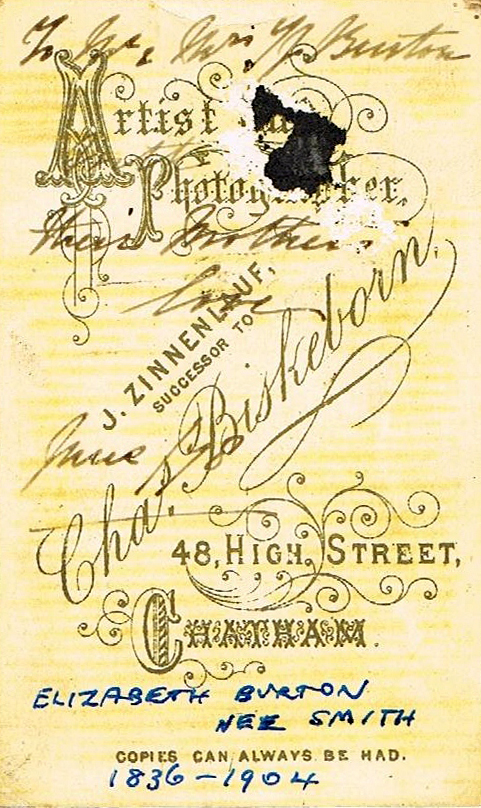 To Mr. Mrs. N Burton
Artist and
Photographer,
their Mother's
Love
J. ZINNENLAUF,
SUCCESSOR TO
Chas. Biskeborn.
June
48, HIGH STREET,
CHATHAM.
ELIZABETH BURTON
NEE SMITH
COPIES CAN ALWAYS BE HAD.
1836-1904